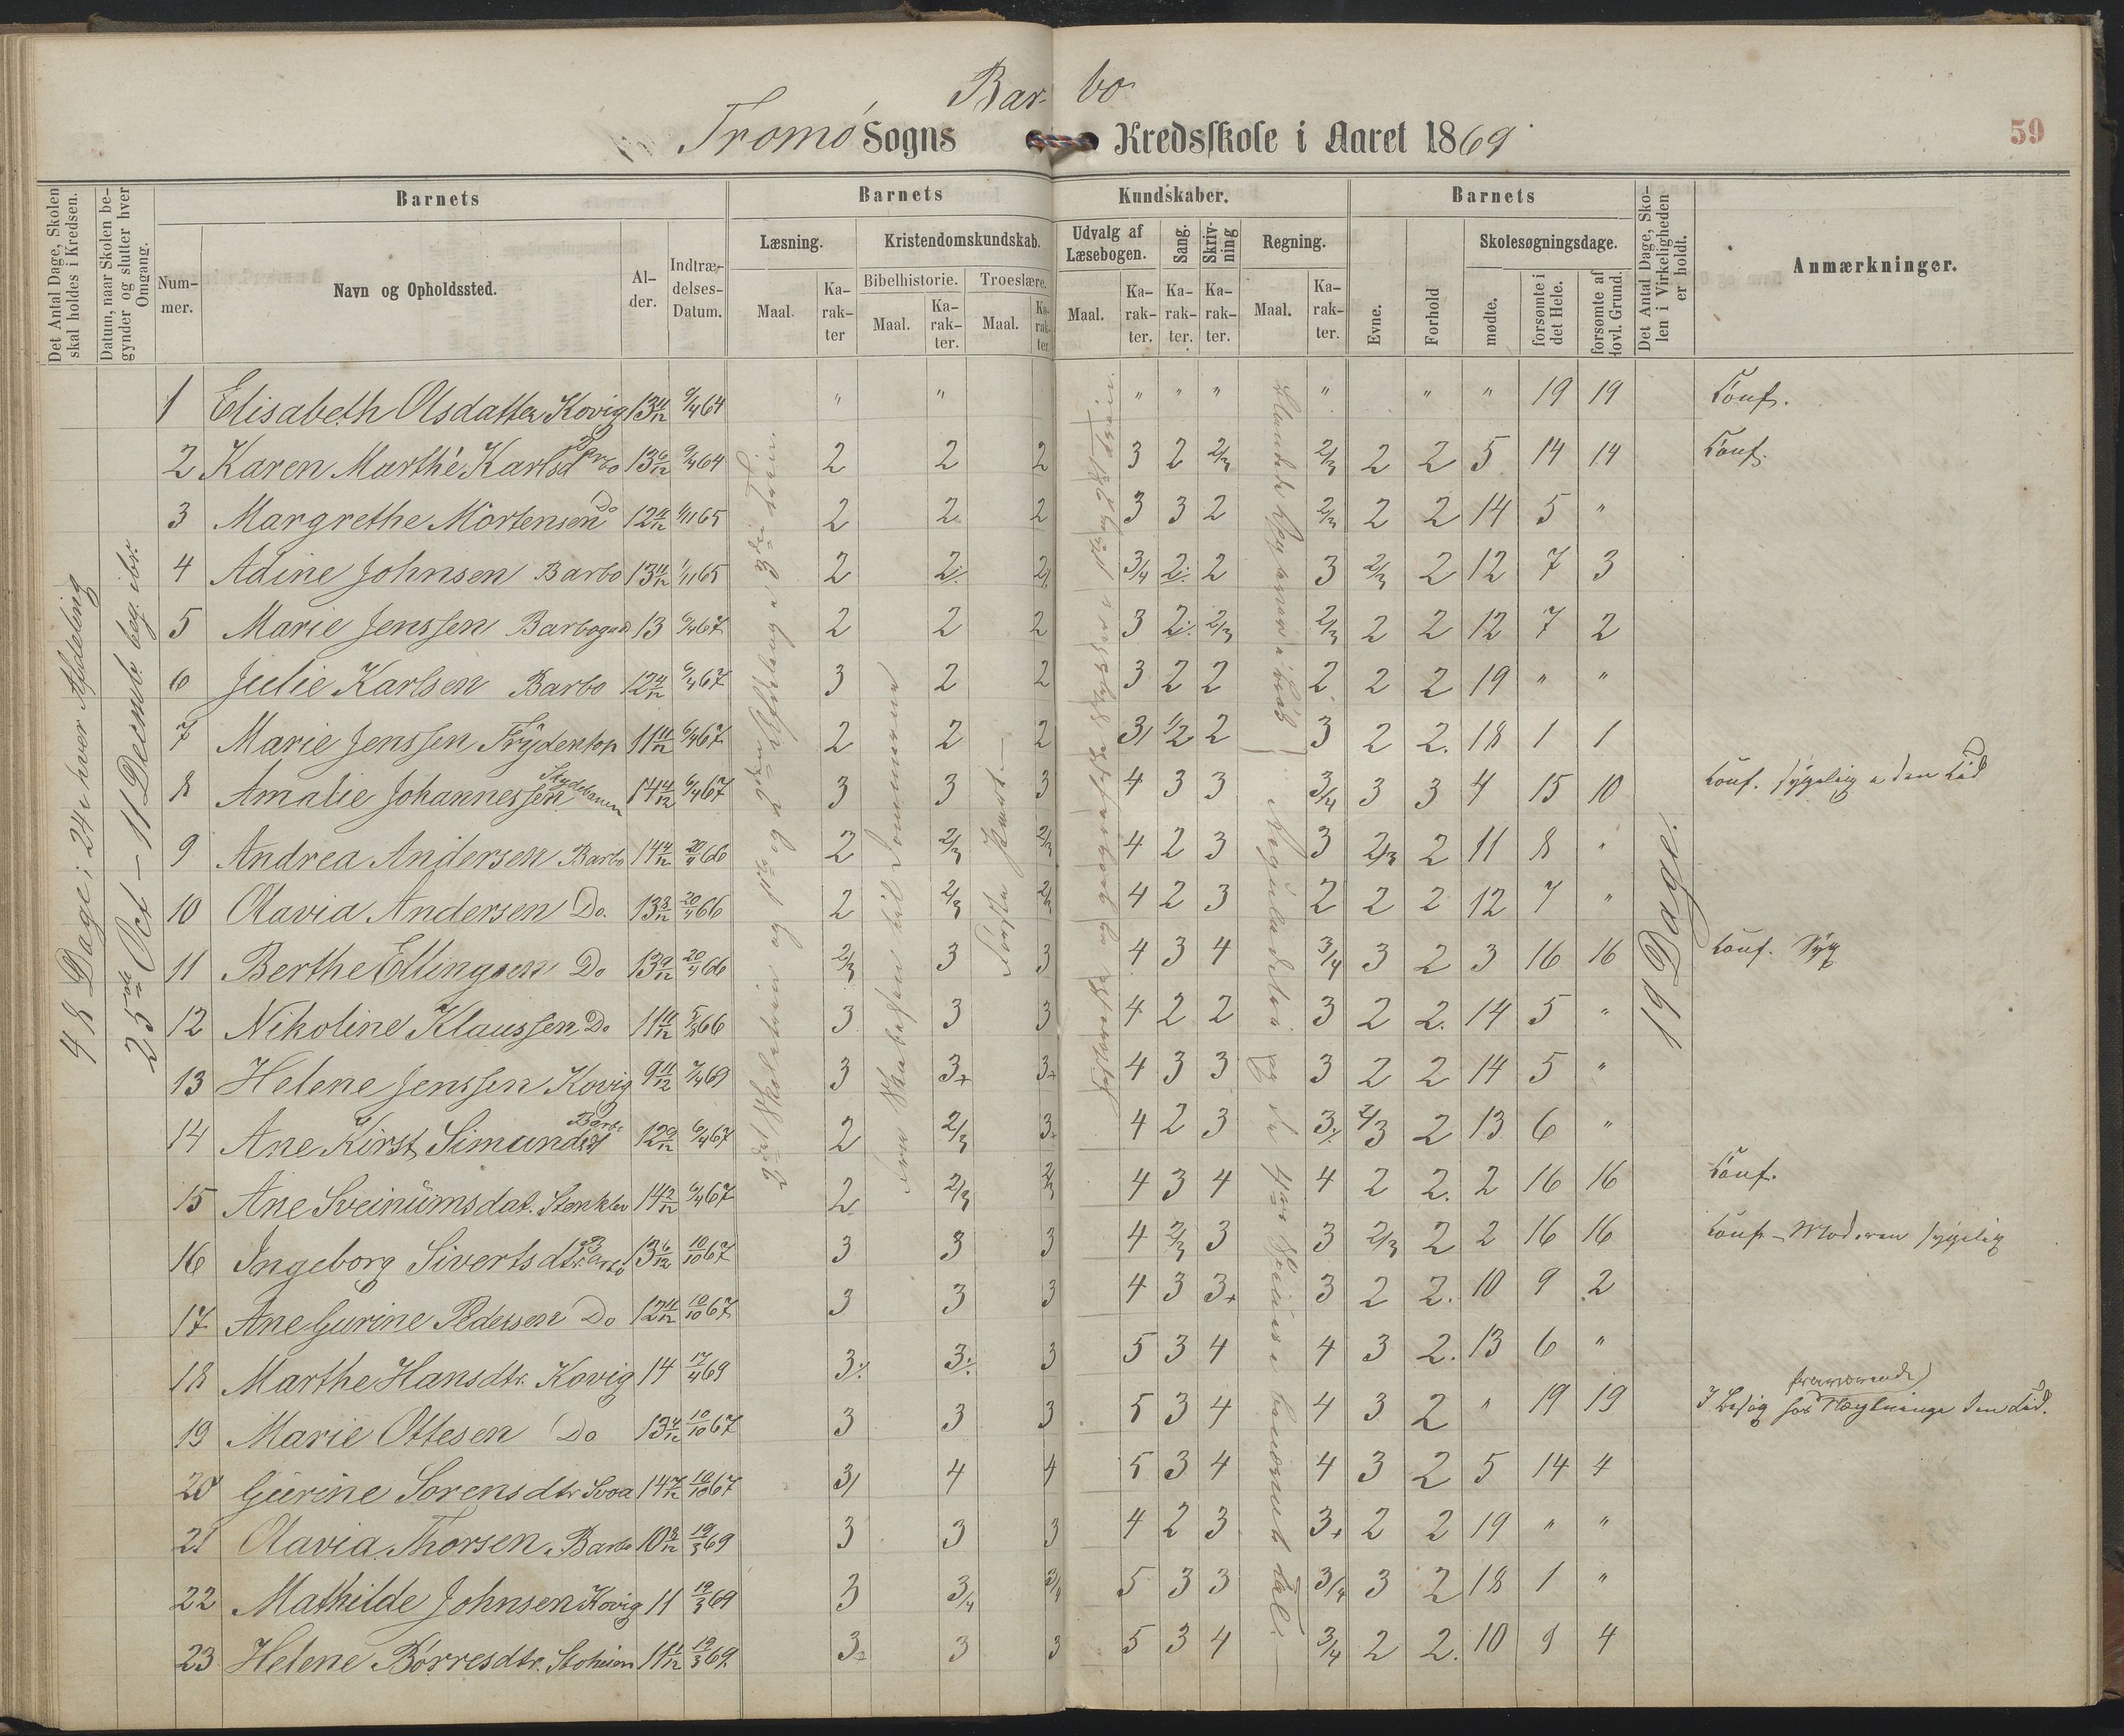 Bar- bo
Tromø Sogns Kredsskole i Aaret 1869
59
Det Antal Dage, Skolen skal holdes i Kredsen.
Datum, naar Skolen begynder og slutter hver Omgang.
Barnets
Nummer.
Navn og Opholdssted.
Alder.
Indtrædelses-Datum.
Barnets Kundskaber.
Læsning.
Kristendomskundskab.
Udvalg af Læsebogen.
Sang.
Skrivning
Regning.
Bibelhistorie.
Troeslære.
Maal. Karakter Maal. Karakter. Maal. Karakter. Maal. Karakter. Karakter. Karakter. Maal. Karakter.
Barnets
Evne.
Forhold
Skolesøgningsdage.
mødte.
forsømte i det Hele.
forsømte af lovl. Grund.
Det Antal Dage, Skolen i Virkeligheden er holdt.
Anmærkninger.
48 Dage; 24 i hver Afdeling
25de Oct - 11 Decmb. beg. ibr.
19 Dage.
1 Elisabeth Olsdatter Kovig 13 11/12 9/4 64 " " " " " " " " 19 19 Conf.
2 Karen Marthé Karlsd Barbo 13 6/12 9/4 64 2 2 2 3 2 2/3 2/3 2 2 5 14 14 Conf.
3 Margrethe Mortensen Do 12 11/12 1/11 65 2 2 2 3 3 2 2/3 2 2 14 5 "
4 Adine Johnsen Barbo 13 11/12 1/11 65 2 2 2 3/4 2 2 3 2/3 2 12 7 3
5 Marie Jenssen Barbogad 13 6/4 67 2 2 2 3 2 2/3 2/3 2 2 12 7 2
6 Julie Karlsen Barbo 12 4/12 6/4 67 3 2 2 3 2 2 2 2 2 19 " "
7 Marie Jenssen Frÿdentop 11 11/12 6/4 67 2 2 2 3/ 1/2 2 3 2 2. 18 1 1
8 Amalie Johannessen 14 4/12 6/4 67 3 3 3 4 3 3 3/4 3 3 4 15 10 Conf. sygelig
9 Andrea Andersen Barbo 14 4/12 20/4 66 2 2/3 2/3 4 2 3 3 2/3 2 11 8 "
10 Olavia Andersen Do. 13 3/12 20/4 66 2 2/3 2/3 4 2 3 2 2 2 12 7 "
11 Berthe Ellingsen Do 13 9/12 20/4 66 2/3 3 3 4 3 4 3/4 3 2 3 16 16 Conf. Syg
12 Nikoline Klaussen Do 11 10/12 66 3 3 3 4 2 2 3 2 2. 14 5 "
13 Helene Jenssen Kovig 9 11/12 7/4 69 3 3+ 3+ 4 3 3 3 2 2 14 5 "
14 Ane Kirst. Simundsd Barbo 12 9/12 6/4 67 2 2/3 3+ 4 2 3 3 2/3 2 13 6 "
15 Ane Sveinümsdat. Stenklev 14 2/12 6/4 67 2 2/3 2/3 4 3 4 4 2 2. 2 16 16 Conf.
16 Ingeborg Sivertsdtr. Barbo 13 6/12 10/10 67 3 3 3 4 2/3 3 3 2/3 2 2 16 16 Conf - Moderen sygelig
17 Ane Gurine Pedersen Do 12 11/12 10/10 67 3 3 3 4 3 3+ 3 2 2. 10 9 2
18 Marthe Hansdtr. Kovig 14 17/4 69 3 3 3 5 3 4 4 3 2. 13 6 "
19 Marie Ottesen Do 13 4/12 10/10 67 3 3 3 5 3 4 4 3 2 " 19 19 I Besøg hos fraværende
20 Gürine Sorensdtr Svoa 14 7/12 10/10 67 3/ 4 4 5 3 4 4 3 2 5 14 4
21 Olavia Thorsen Barbo 10 8/12 19/3 69 3 3 3 4 2 3 3+ 2 2 19 " "
22 Mathilde Johnsen Kovig 11 19/3 69 3 3/4 3/4 5 3 3 3/4 3 2 18 1 "
23 Helene Börresdtr. 11 1/12 19/3 69 3 3 3 5 3 4 3/4 2 2. 10 9 4